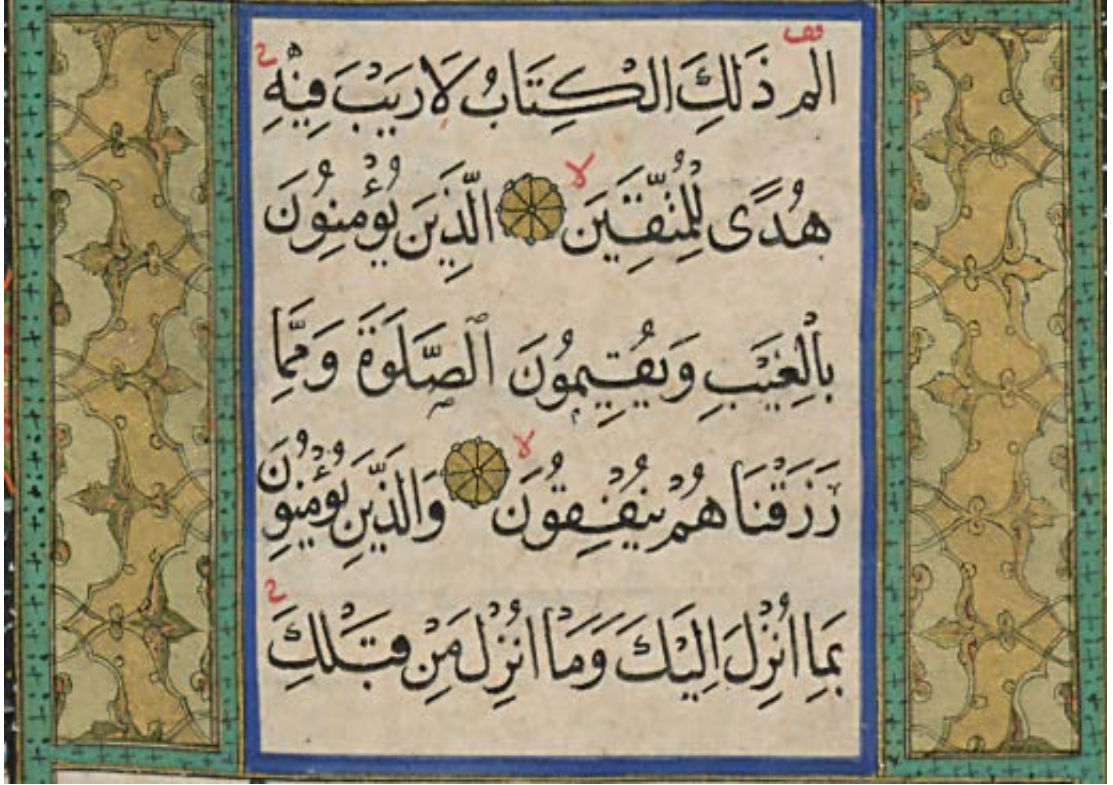 الم ذَلِكَ الْكِتَابُ لَا رَيْبَ فِيْهِ
هُدًى لِلْمُتَّقِيَن الَّذِيَن يُؤْمِنُونَ
بِالْغَيْبِ وَيُقِيمُونَ ٱلصَّلَوةَ وَمِمَّا
رَزَقْنَا هُمْ يُنْفِقُونَ وَالَّذِيَن يُؤْمِنُونَ
بِمَا اُنْزِلَ اِلَيْكَ وَمَا اُنْزِلَ مِنْ قَبْلِكَ